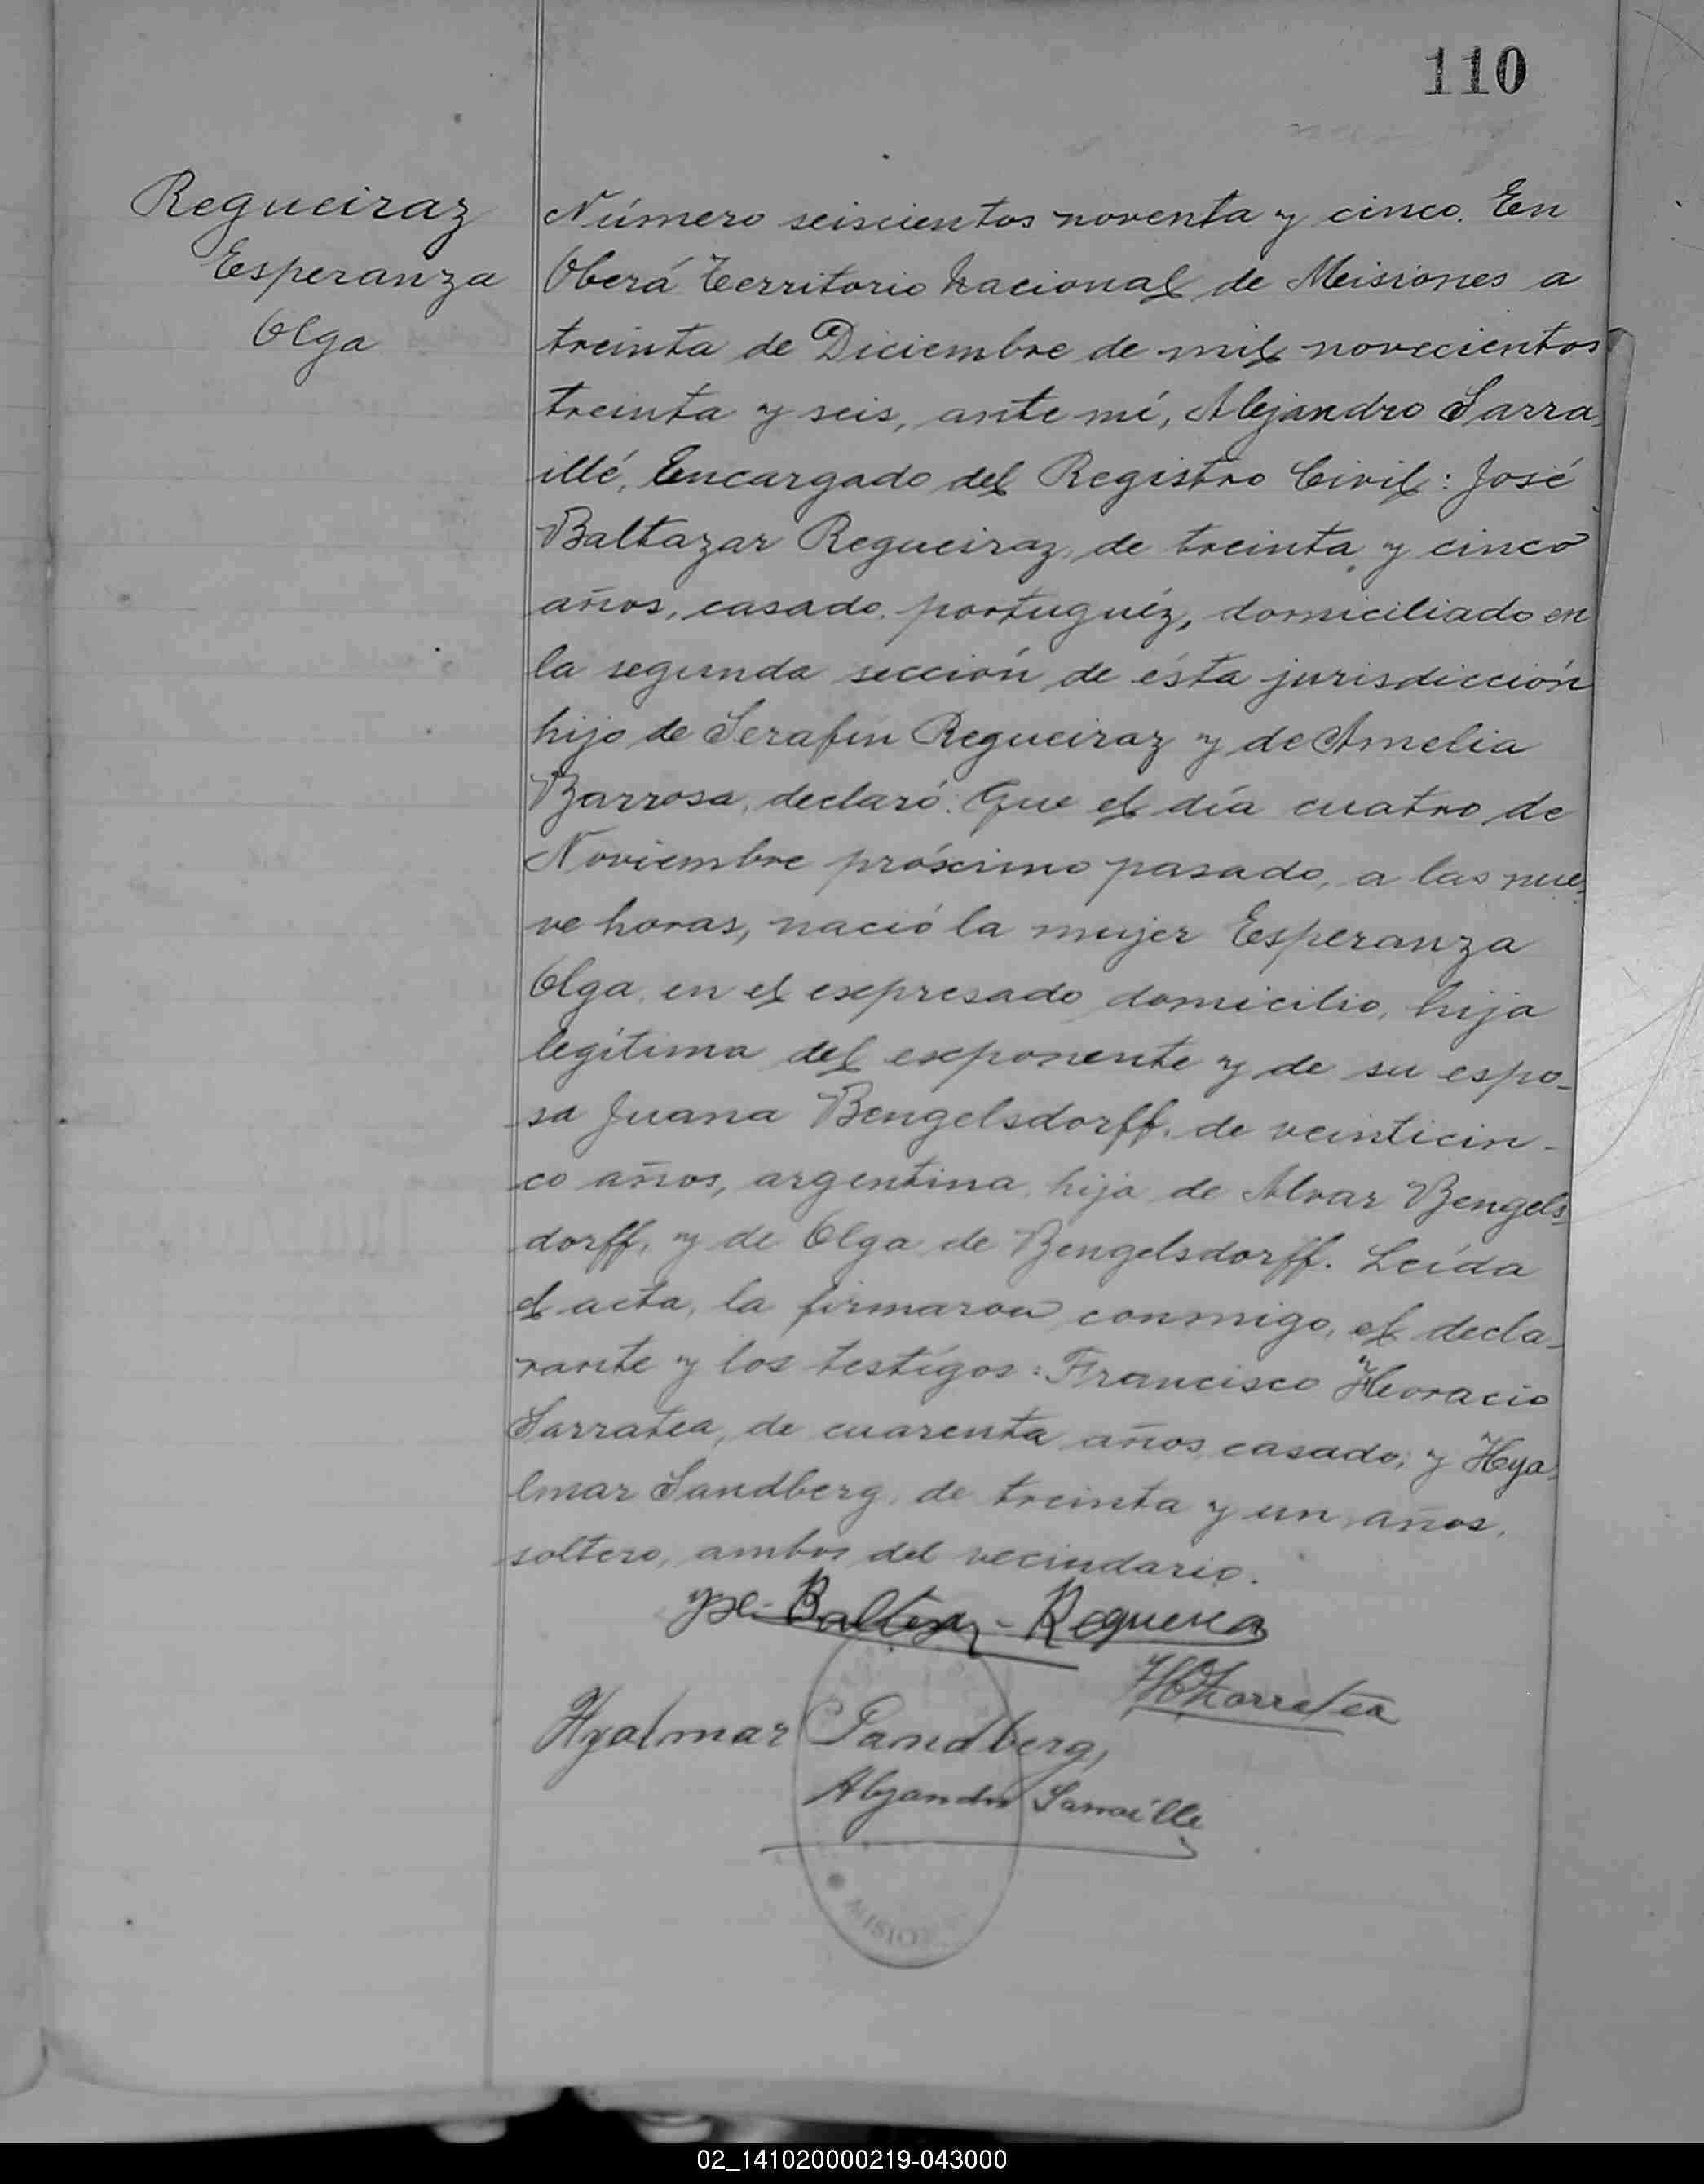 110
Regueiraz
Esperanza
Olga
Número seiscientos noventa y cinco. En
Oberá Territorio Nacional de Meisiones a
treinta de Diciembre de mil novecientos
treinta y seis, ante mí, Alejandro Sarra-
illé, Encargado del Registro Civil: José
Baltazar Regueiraz, de treinta y cinco
años, casado, portuguéz, domiciliado en
la segunda sección de ésta jurisdicción
hijo de Serafín Regueiraz y de Amelia
Barrosa, declaró: Que el día cuatro de
Noviembre próximo pasado, a las nue-
ve horas, nació la mujer Esperanza
Olga, en el expresado domicilio, hija
legítima del exponente y de su espo-
sa Juana Bengelsdorff, de veinticin-
co años, argentina, hija de Alvar Bengels-
dorff, y de Olga de Bengelsdorff. Leída
el acta, la firmaron conmigo, el decla-
rante y los testigos: Francisco Heoracio
Sarratea, de cuarenta años, casado; y Hya-
lmar Sandberg, de treinta y un años,
soltero, ambos del vecindario.
Baltazar - Regueira
Hyalmar Sandberg,
Alejandro Sarraillé
02_141020000219-043000